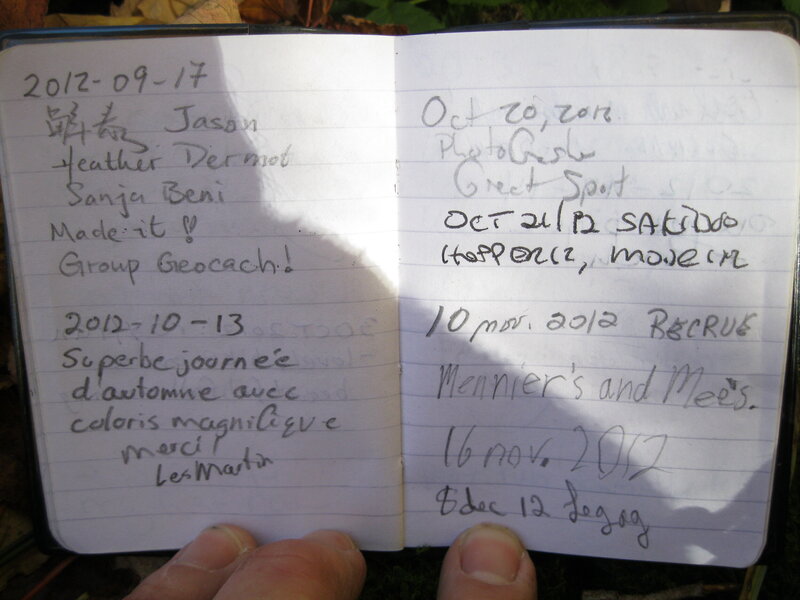 2012-09-17
Jason
Heather Dermot
Sanja Beni
Made it!!
Group Geocach!
2012-10-13
Superbe journeé
d'automne avec
coloris magnifique
merci!
Les Martin
Oct 20, 2012
Great Spot
OCT 21/12
10 nov. 2012 RECRUE
Mennier's and Mee's.
16 nov. 2012
8 dec 12